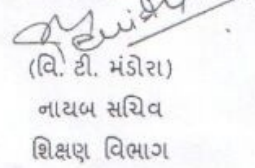 (વિ. ટી. મંડોરા)
નાયબ સચિવ
શિક્ષણ વિભાગ